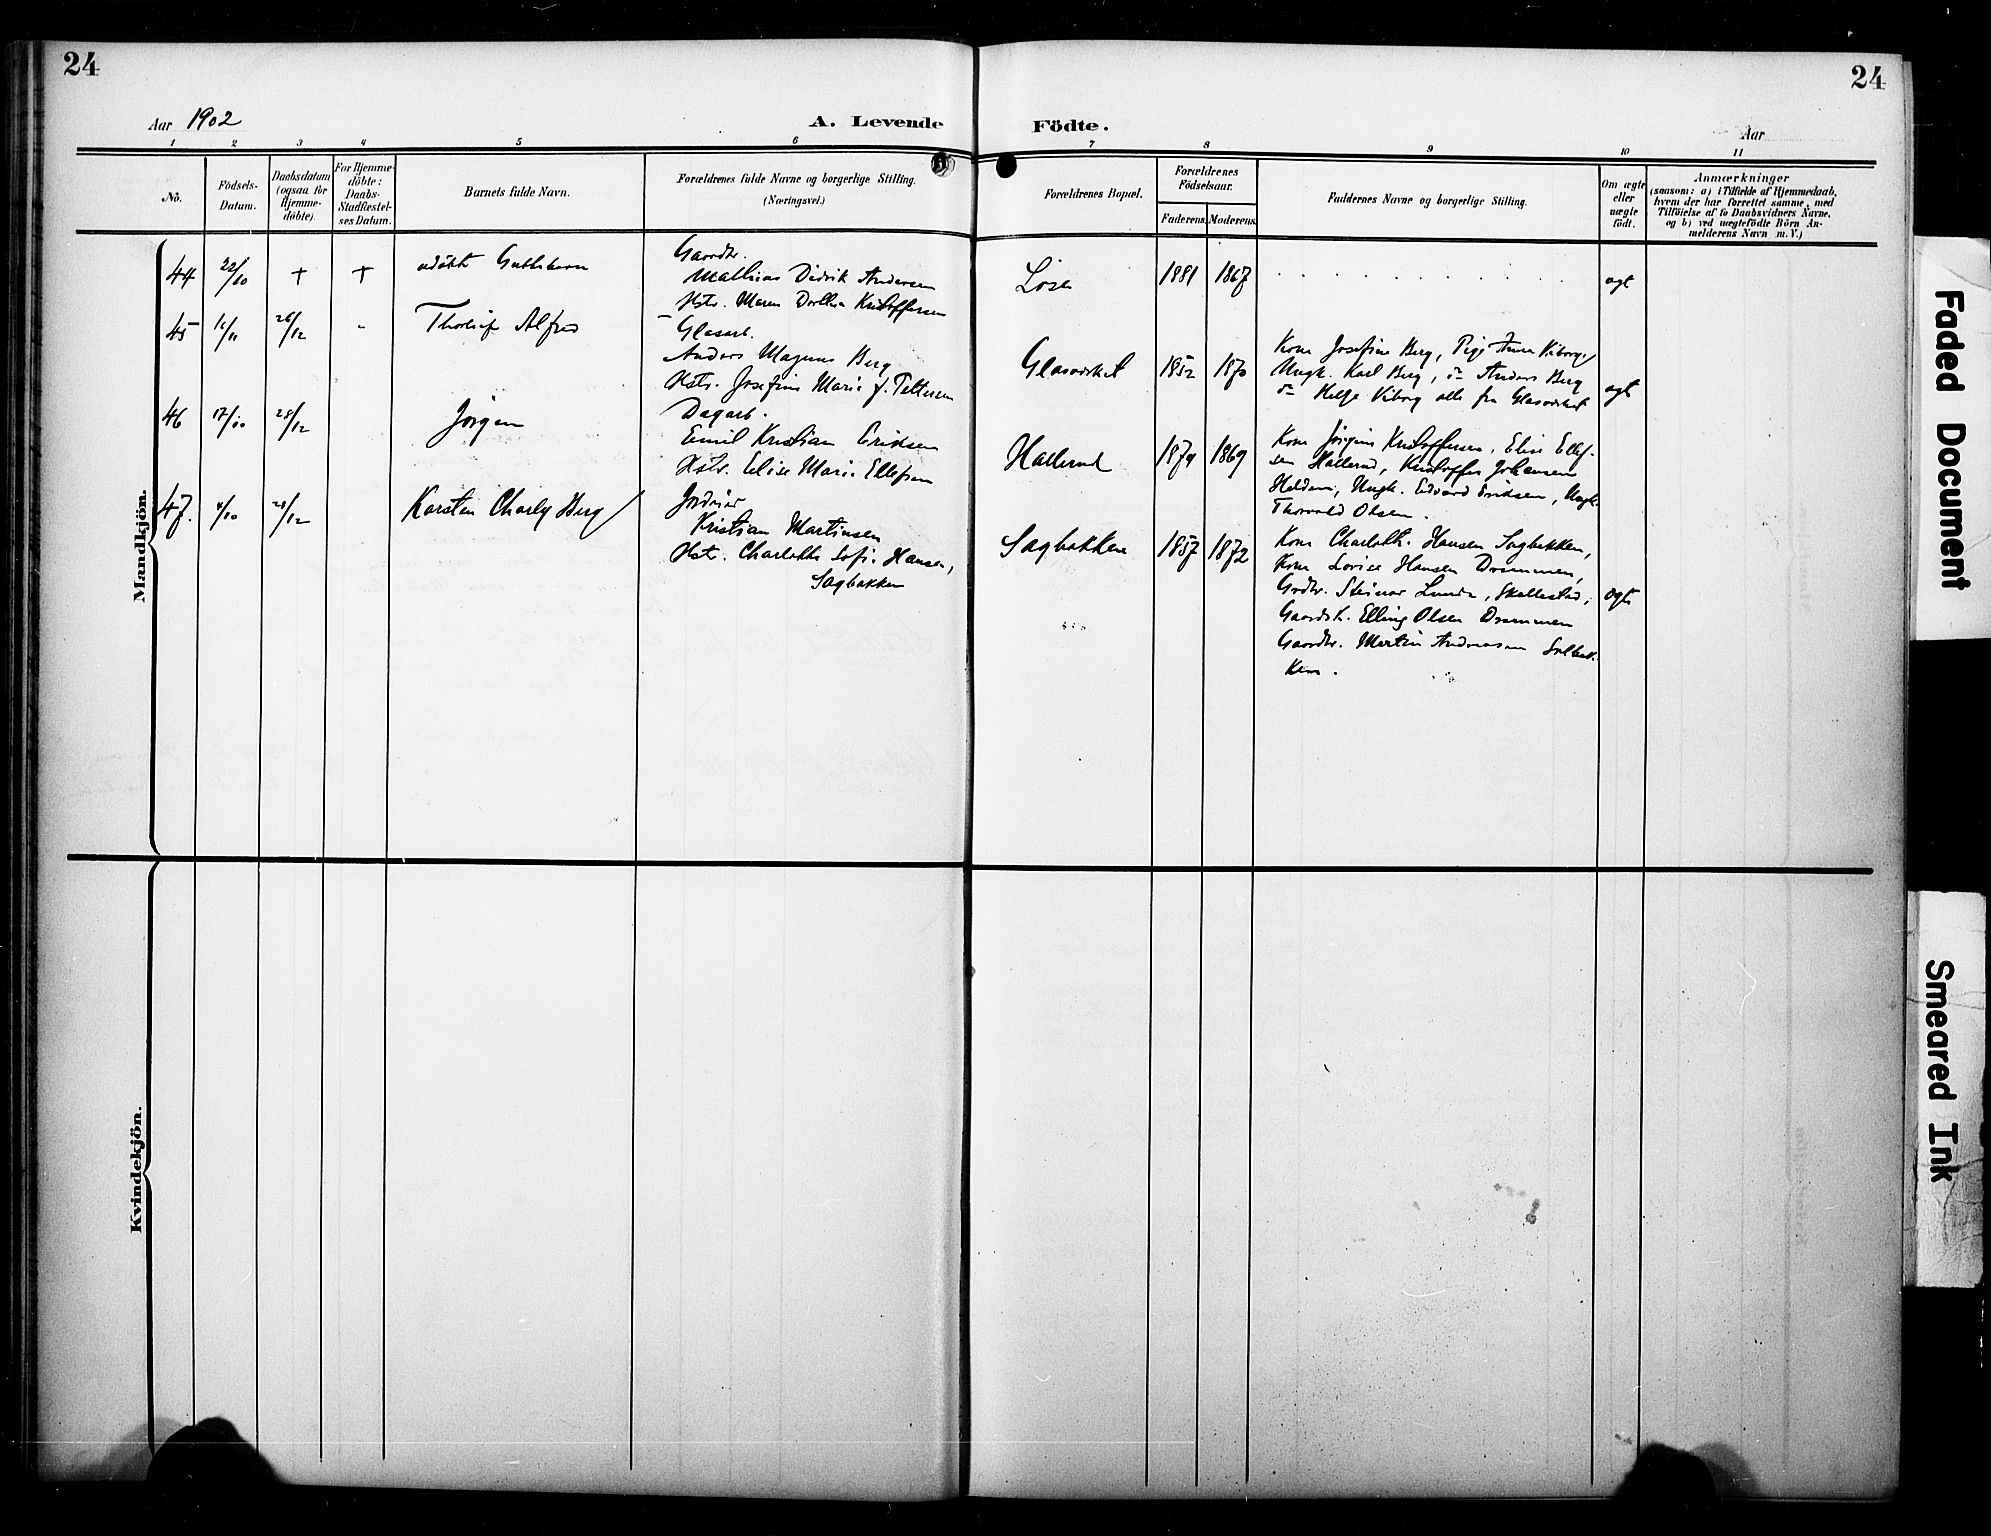 24
24
Aar 1902
A. Levende
Födte.
Aar
1 2 3 4 5 6 7 8 9 10 11
No.
Födsels-
Datum.
Daabsdatum
(ogsaa for
Hjemme-
döbte).
For Hjemme-
döbte:
Daabs-
Stadfæstel-
ses Datum.
Barnets fulde Navn.
Forældrenes fulde Navne og borgerlige Stilling.
(Næringsvei.)
Forældrenes Bopæl.
Forældrenes
Födselsaar.
Faderens. Moderens.
Faddernes Navne og borgerlige Stilling.
Om ægte
eller
uægte
födt.
Anmærkninger
(saasom: a) i Tilfælde af Hjemmedaab,
hvem der har forrettet samme, med
Tilföielse af to Daabsvidners Navne,
og b) ved uægtefödte Börn An-
melderens Navn m. V.)
Mandkjön.
44 22/10 + + udöbt Guttebarn
Gaardbr.
Mathias Didrik Andersen
Hstr. Maren Dorthea Kristoffersen
1881 1867
ægt
45 11/11 26/12 - Thorleif Alfred
Glasarb.
Anders Magnus Berg
Hstr. Josefine Marie f. Pettersen
Glasværket 1852 1870
Kone Josefine Berg, Pige Anna Viborg,
Ungk. Karl Berg, do Anders Berg
do Helge Viborg alle fra Glasværket
ægt
46 17/10 28/12 Jörgen
Dagarb.
Emil Kristian Eriksen
Hstr. Elise Marie Ellefsen
Hallerud 1879 1869
Kone Jörgine Kristoffersen, Elise Ellef-
sen Hallerud, Kristoffer Johansen
Ungk. Edvard Eriksen, Ungk.
Thorvald Olsen.
47. 4/10 28/12 Karsten Charly Berg
Kristian Martinsen
Hstr. Charlotte Sofie Hansen,
Sagbakken
Sagbakken 1857 1872
Kone Charlotte Hansen Sagbakken,
Kone Lovise Hansen Drammen,
Grdbr. Steinar Lunde, Skallestad,
Gaardsk. Elling Olsen Drammen
Gaardbr. Martin Andreasen Solbak-
ken.
ægte
Kvindekjön.
Faded Document
Smeared Ink